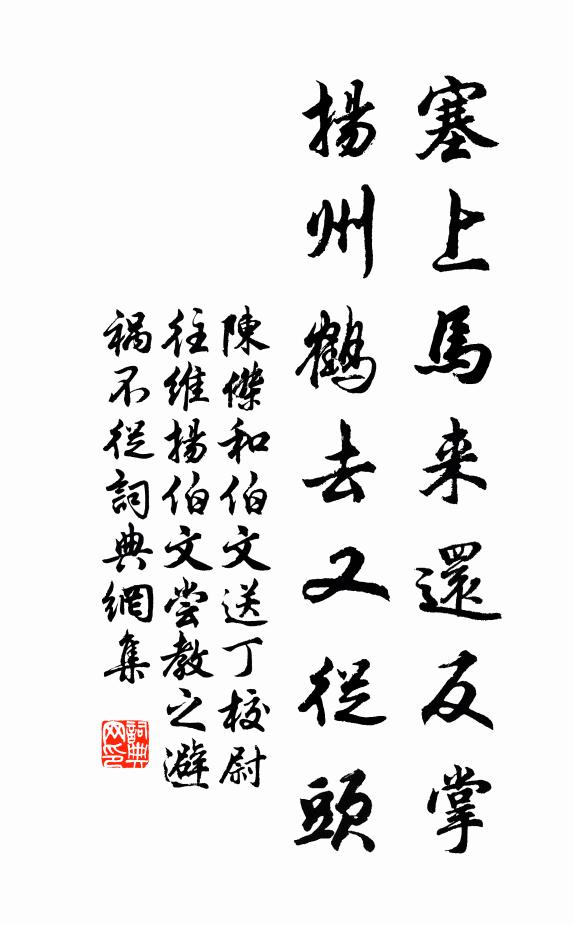 塞上馬来還反掌
揚州鶴去又従頭
陳傑和伯文送丁校尉
往維揚伯文嘗教之避
禍不従詞典網集
詞典網印